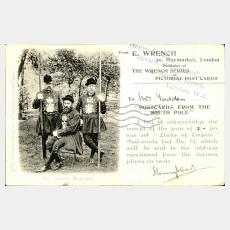 From E. WRENCH
20, Haymarket, London
Publisher of
THE WRENCH SERIES
of
PICTORIAL POST CARDS
To
"POSTCARDS FROM THE
SOUTH POLE"
I beg to acknowledge the
receipt of the sum of 2/- for
one set "Links of Empire"
Postcards (set No. ), which
will be sent to the address
mentioned from the various
places en route.